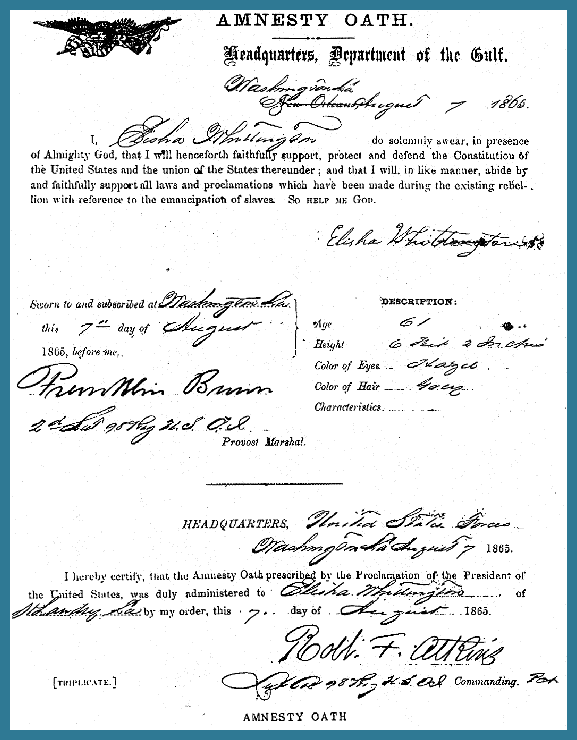 AMNESTY OATH.
Headquarters, Department of the Gulf.
Washington La
New Orleans, August 7 1865.
I, Elisha Whittington do solemnly swear, in presence
of Almighty God, that I will henceforth faithfully support, protect and defend the Constitution of
the United States and the union of the States thereunder; and that I will, in like manner, abide by
and faithfully support all laws and proclamations which have been made during the existing rebel-
lion with reference to the emancipation of slaves. So HELP ME GOD.
Elisha Whittington
Sworn to and subscribed at Washington La.
this 7th day of August
1865, before me,
Franklin Bunn
2d Lt 98 Reg U.S. C.I.
Provost Marshal.
DESCRIPTION:
Age 61
Height 6 Feet 2 Inches
Color of Eyes Hazel
Color of Hair Grey
Characteristics
HEADQUARTERS, United States Forces
Washington La August 7 1865.
I hereby certify, that the Amnesty Oath prescribed by the Proclamation of the President of
the United States, was duly administered to Elisha Whittington of
St Landry La by my order, this 7 day of August 1865.
Robt. F. Atkins
Lt Col 98 Reg U.S. C.I. Commanding. Post
[TRIPLICATE.]
AMNESTY OATH